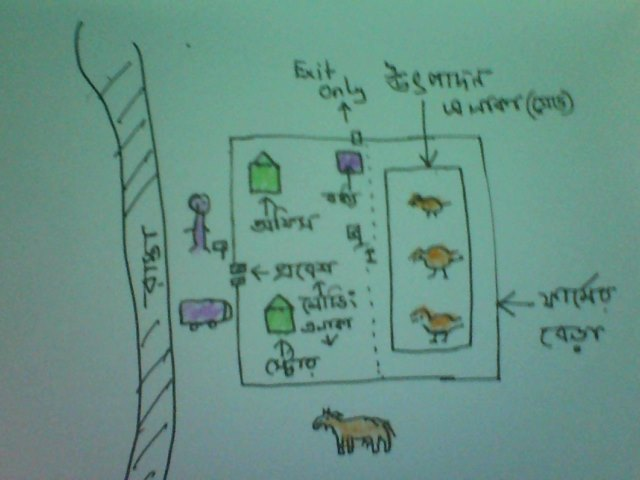 Exit
only
উৎপাদন
এলাকা (শেড)
বর্জ্য
অফিস
রাস্তা
প্রবেশ
লোডিং
এলাকা
স্টোর
ফার্মের
বেড়া